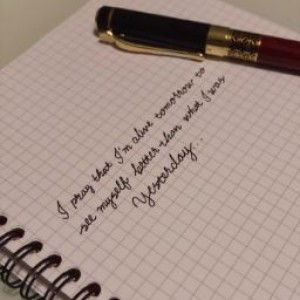 I pray that I'm alive tomorrow to
see myself better than what I was
Yesterday...